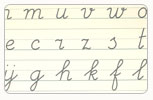 i m u v w o
e c r z s t
ij g h k f l